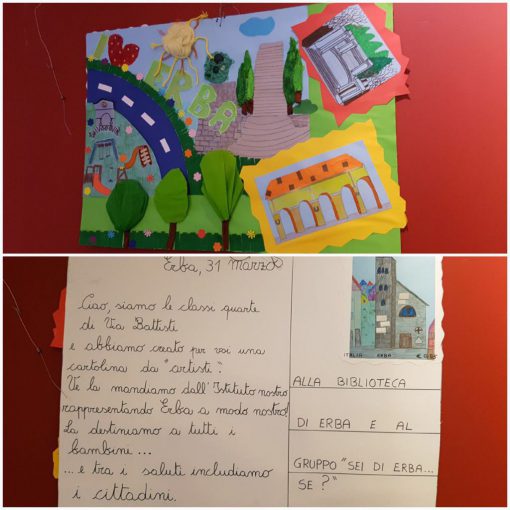 I ❤ ERBA
Erba, 31 Marzo
Ciao, siamo le classi quarte
di Via Battisti
e abbiamo creato per voi una
cartolina da "artisti".
Ve la mandiamo dall'Istituto nostro
rappresentando Erba a modo nostro!
La destiniamo a tutti i
bambini...
... e tra i saluti includiamo
i cittadini.
ITALIA ERBA
ALLA BIBLIOTECA
DI ERBA E AL
GRUPPO "SEI DI ERBA...
SE ?"